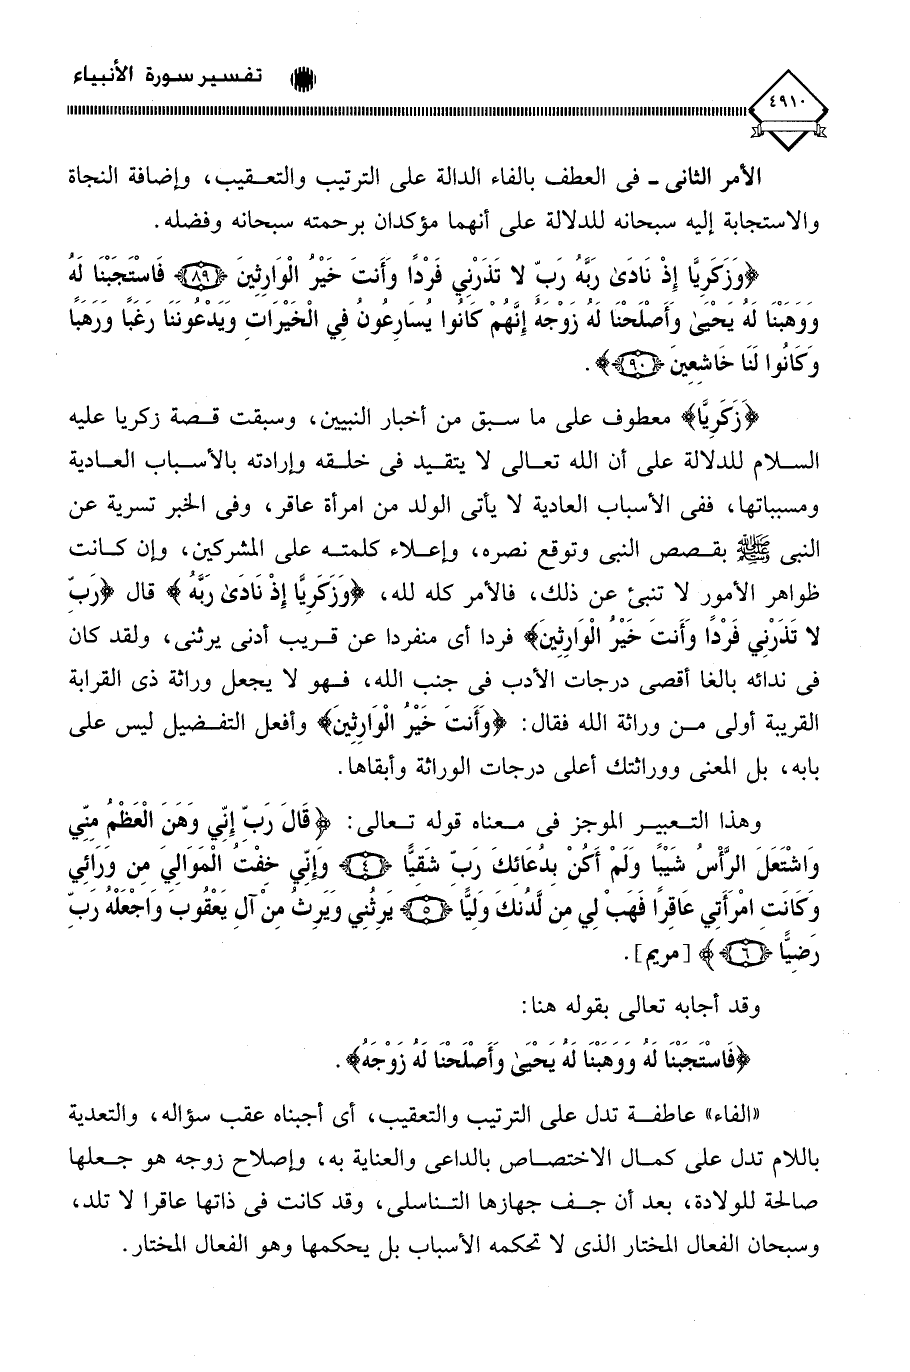 تفسير سورة الأنبياء
٤٩١٠
الأمر الثانى ـ فى العطف بالفاء الدالة على الترتيب والتعقيب، وإضافة النجاة
والاستجابة إليه سبحانه للدلالة على أنهما مؤكدان برحمته سبحانه وفضله.
﴿وَزَكَرِيَّا إِذْ نَادَىٰ رَبَّهُ رَبِّ لا تَذَرْنِي فَرْدًا وَأَنتَ خَيْرُ الْوَارِثِينَ ﴿٨٩﴾ فَاسْتَجَبْنَا لَهُ
وَوَهَبْنَا لَهُ يَحْيَىٰ وَأَصْلَحْنَا لَهُ زَوْجَهُ إِنَّهُمْ كَانُوا يُسَارِعُونَ فِي الْخَيْرَاتِ وَيَدْعُونَنَا رَغَبًا وَرَهَبًا
وَكَانُوا لَنَا خَاشِعِينَ ﴿٩٠﴾﴾.
﴿زَكَرِيَّا﴾ معطوف على ما سبق من أخبار النبيين، وسبقت قصة زكريا عليه
السلام للدلالة على أن الله تعالى لا يتقيد فى خلقه وإرادته بالأسباب العادية
ومسبباتها، ففى الأسباب العادية لا يأتى الولد من امرأة عاقر، وفى الخبر تسرية عن
النبى ﷺ بقصص النبى وتوقع نصره، وإعلاء كلمته على المشركين، وإن كانت
ظواهر الأمور لا تنبئ عن ذلك، فالأمر كله لله، ﴿وَزَكَرِيَّا إِذْ نَادَىٰ رَبَّهُ﴾ قال ﴿رَبِّ
لا تَذَرْنِي فَرْدًا وَأَنتَ خَيْرُ الْوَارِثِينَ﴾ فردا أى منفردا عن قريب أدنى يرثنى، ولقد كان
فى ندائه بالغا أقصى درجات الأدب فى جنب الله، فهو لا يجعل وراثة ذى القرابة
القريبة أولى من وراثة الله فقال: ﴿وَأَنتَ خَيْرُ الْوَارِثِينَ﴾ وأفعل التفضيل ليس على
بابه، بل المعنى ووراثتك أعلى درجات الوراثة وأبقاها.
وهذا التعبير الموجز فى معناه قوله تعالى: ﴿قَالَ رَبِّ إِنِّي وَهَنَ الْعَظْمُ مِنِّي
وَاشْتَعَلَ الرَّأْسُ شَيْبًا وَلَمْ أَكُنْ بِدُعَائِكَ رَبِّ شَقِيًّا ﴿٤﴾ وَإِنِّي خِفْتُ الْمَوَالِيَ مِن وَرَائِي
وَكَانَتِ امْرَأَتِي عَاقِرًا فَهَبْ لِي مِن لَّدُنكَ وَلِيًّا ﴿٥﴾ يَرِثُنِي وَيَرِثُ مِنْ آلِ يَعْقُوبَ وَاجْعَلْهُ رَبِّ
رَضِيًّا ﴿٦﴾﴾ [مريم].
وقد أجابه تعالى بقوله هنا:
﴿فَاسْتَجَبْنَا لَهُ وَوَهَبْنَا لَهُ يَحْيَىٰ وَأَصْلَحْنَا لَهُ زَوْجَهُ﴾.
«الفاء» عاطفة تدل على الترتيب والتعقيب، أى أجبناه عقب سؤاله، والتعدية
باللام تدل على كمال الاختصاص بالداعى والعناية به، وإصلاح زوجه هو جعلها
صالحة للولادة، بعد أن جف جهازها التناسلى، وقد كانت فى ذاتها عاقرا لا تلد،
وسبحان الفعال المختار الذى لا تحكمه الأسباب بل يحكمها وهو الفعال المختار.